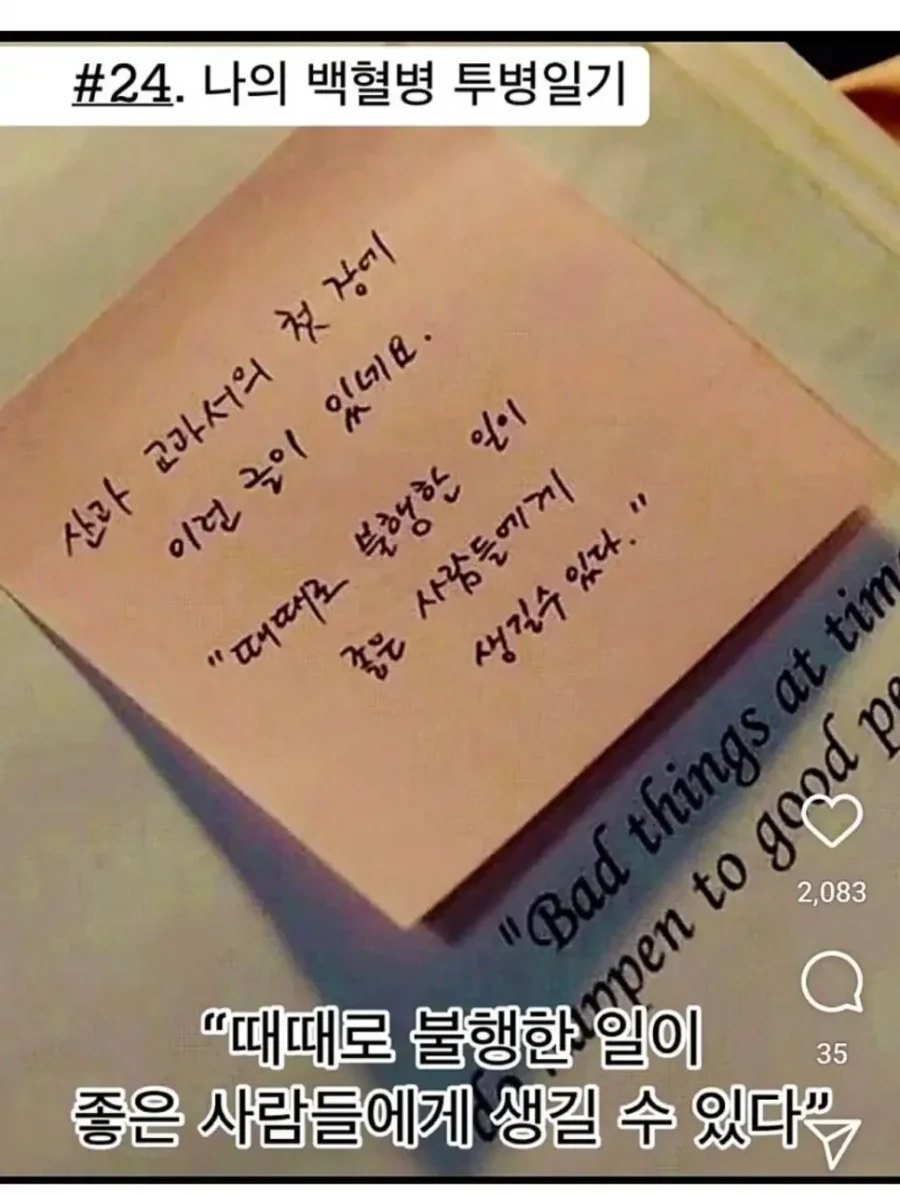 #24. 나의 백혈병 투병일기
산과 교과서의 첫 장에
이런 글이 있네요.
"때때로 불행한 일이
좋은 사람들에게
생길수 있다."
"Bad things at tim
do happen to good pe
2,083
35
“때때로 불행한 일이
좋은 사람들에게 생길 수 있다”